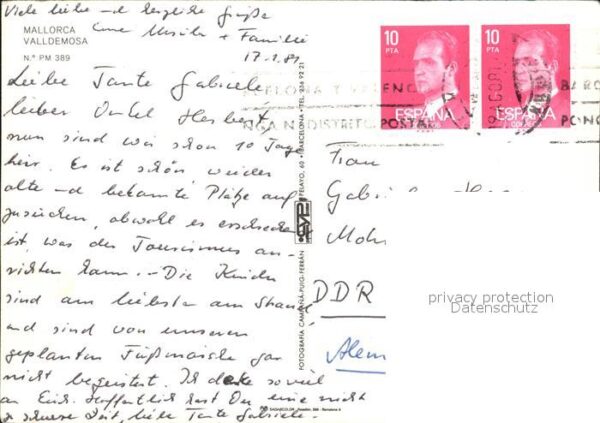 Viele liebe und herzliche Grüße
Eure Ursula + Familie
MALLORCA
VALLDEMOSA
N.º PM 389
17.1.81
Liebe Tante Gabriele,
lieber Onkel Herbert,
nun sind wir schon 10 Tage
hier. Es ist schön wieder
alte und bekannte Plätze auf
zusuchen, obwohl es erschreckend
ist, was der Tourismus an-
richten kann. - Die Kinder
sind am liebsten am Strand
und sind von unseren
geplanten Fußmärsche gar
nicht begeistert. Ich denke so viel
an Euch. Hoffentlich hast Du eine nicht
so schwere Zeit, liebe Tante Gabriele.
10
PTA
ESPAÑA
10
PTA
ESPAÑA
BARC
POSTAL
Frau
Mohr
DDR
privacy protection
Datenschutz
FOTOGRAFIA CAMPAÑÁ-PUIG-FERRÁN
PELAYO, 60 • BARCELONA